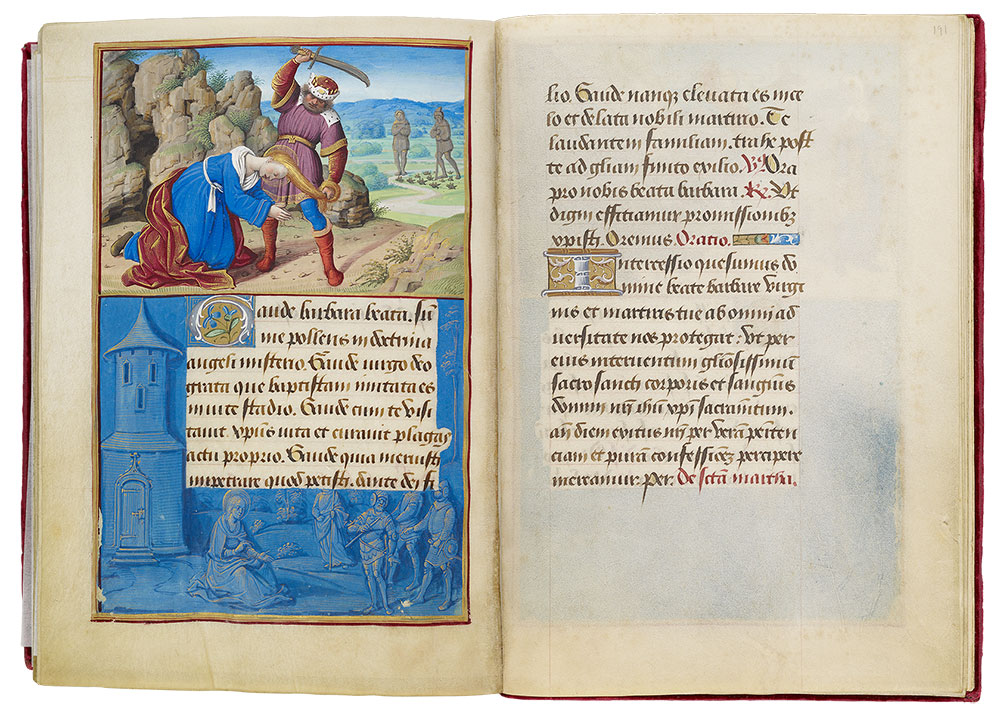 Gaude barbara beata. Su
me pollens in doctrina
angeli misterio. Gaude virgo deo
grata que baptistam imitata es
in vite stadio. Gaude cum te visi
tavit xp̄us vita et curavit plagas
actu proprio. Gaude quia meruisti
impetrare quod petisti. dante dei fi
191
lio. Gaude nanq; elevata es in ce
lo et delata nobili martirio. Te
laudantem familiam. trahe post
te ad gl̄iam finito exilio. V. Ora
pro nobis beata barbara. R. Vt
digni efficiamur promissionib;
xp̄isti. Oremus. Oratio.
Intercessio quesumus do
mine beate barbare virgi
nis et martiris tue ab omni ad
versitate nos protegat: vt per
eius interventum gloriosissimū
sacro sancti corporis et sanguis
domini nr̄i ih̄u xp̄i sacramentum.
an̄ diem exitus nr̄i per verā peniten
ciam et purā confessionē percipere
mereamur. Per. De sctā martha.